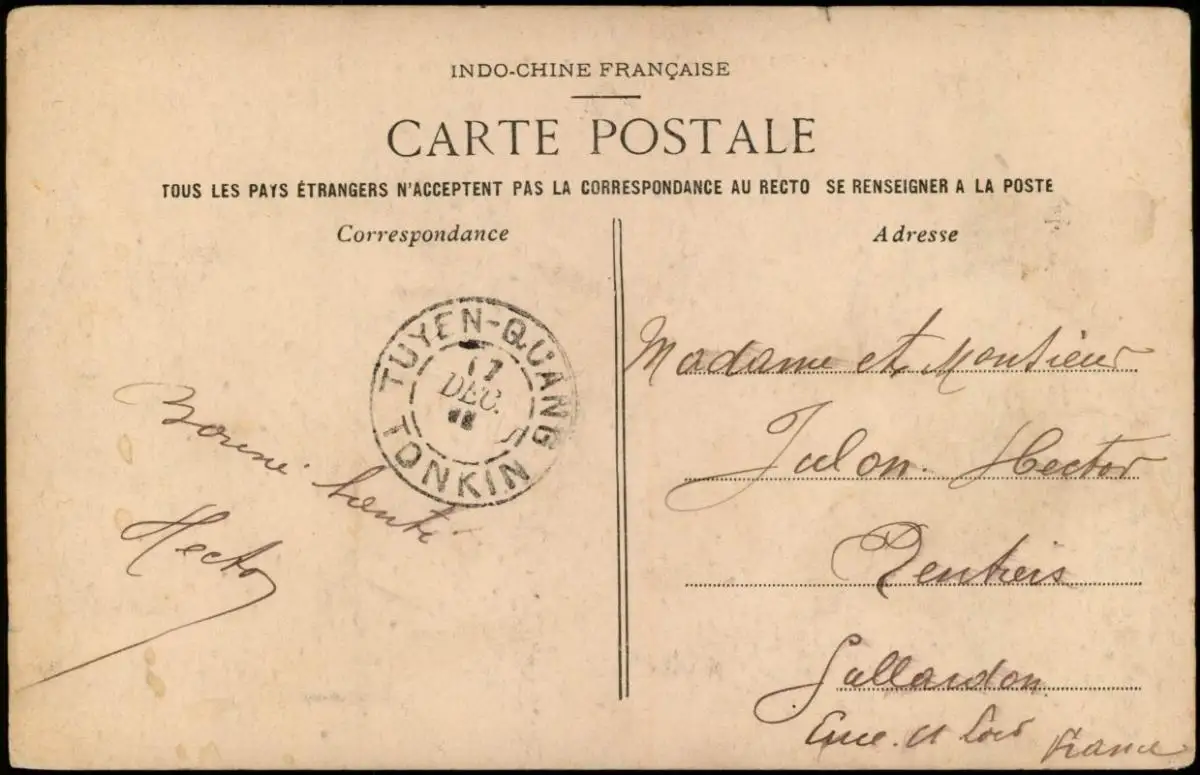 INDO-CHINE FRANÇAISE
CARTE POSTALE
TOUS LES PAYS ÉTRANGERS N'ACCEPTENT PAS LA CORRESPONDANCE AU RECTO SE RENSEIGNER A LA POSTE
Correspondance
Adresse
TUYEN-QUANG
17
DEC.
TONKIN
Bonne Santé
Hector
Madame et Monsieur
Julon Hector
Rentiers
Gallardon
Eure et Loir France